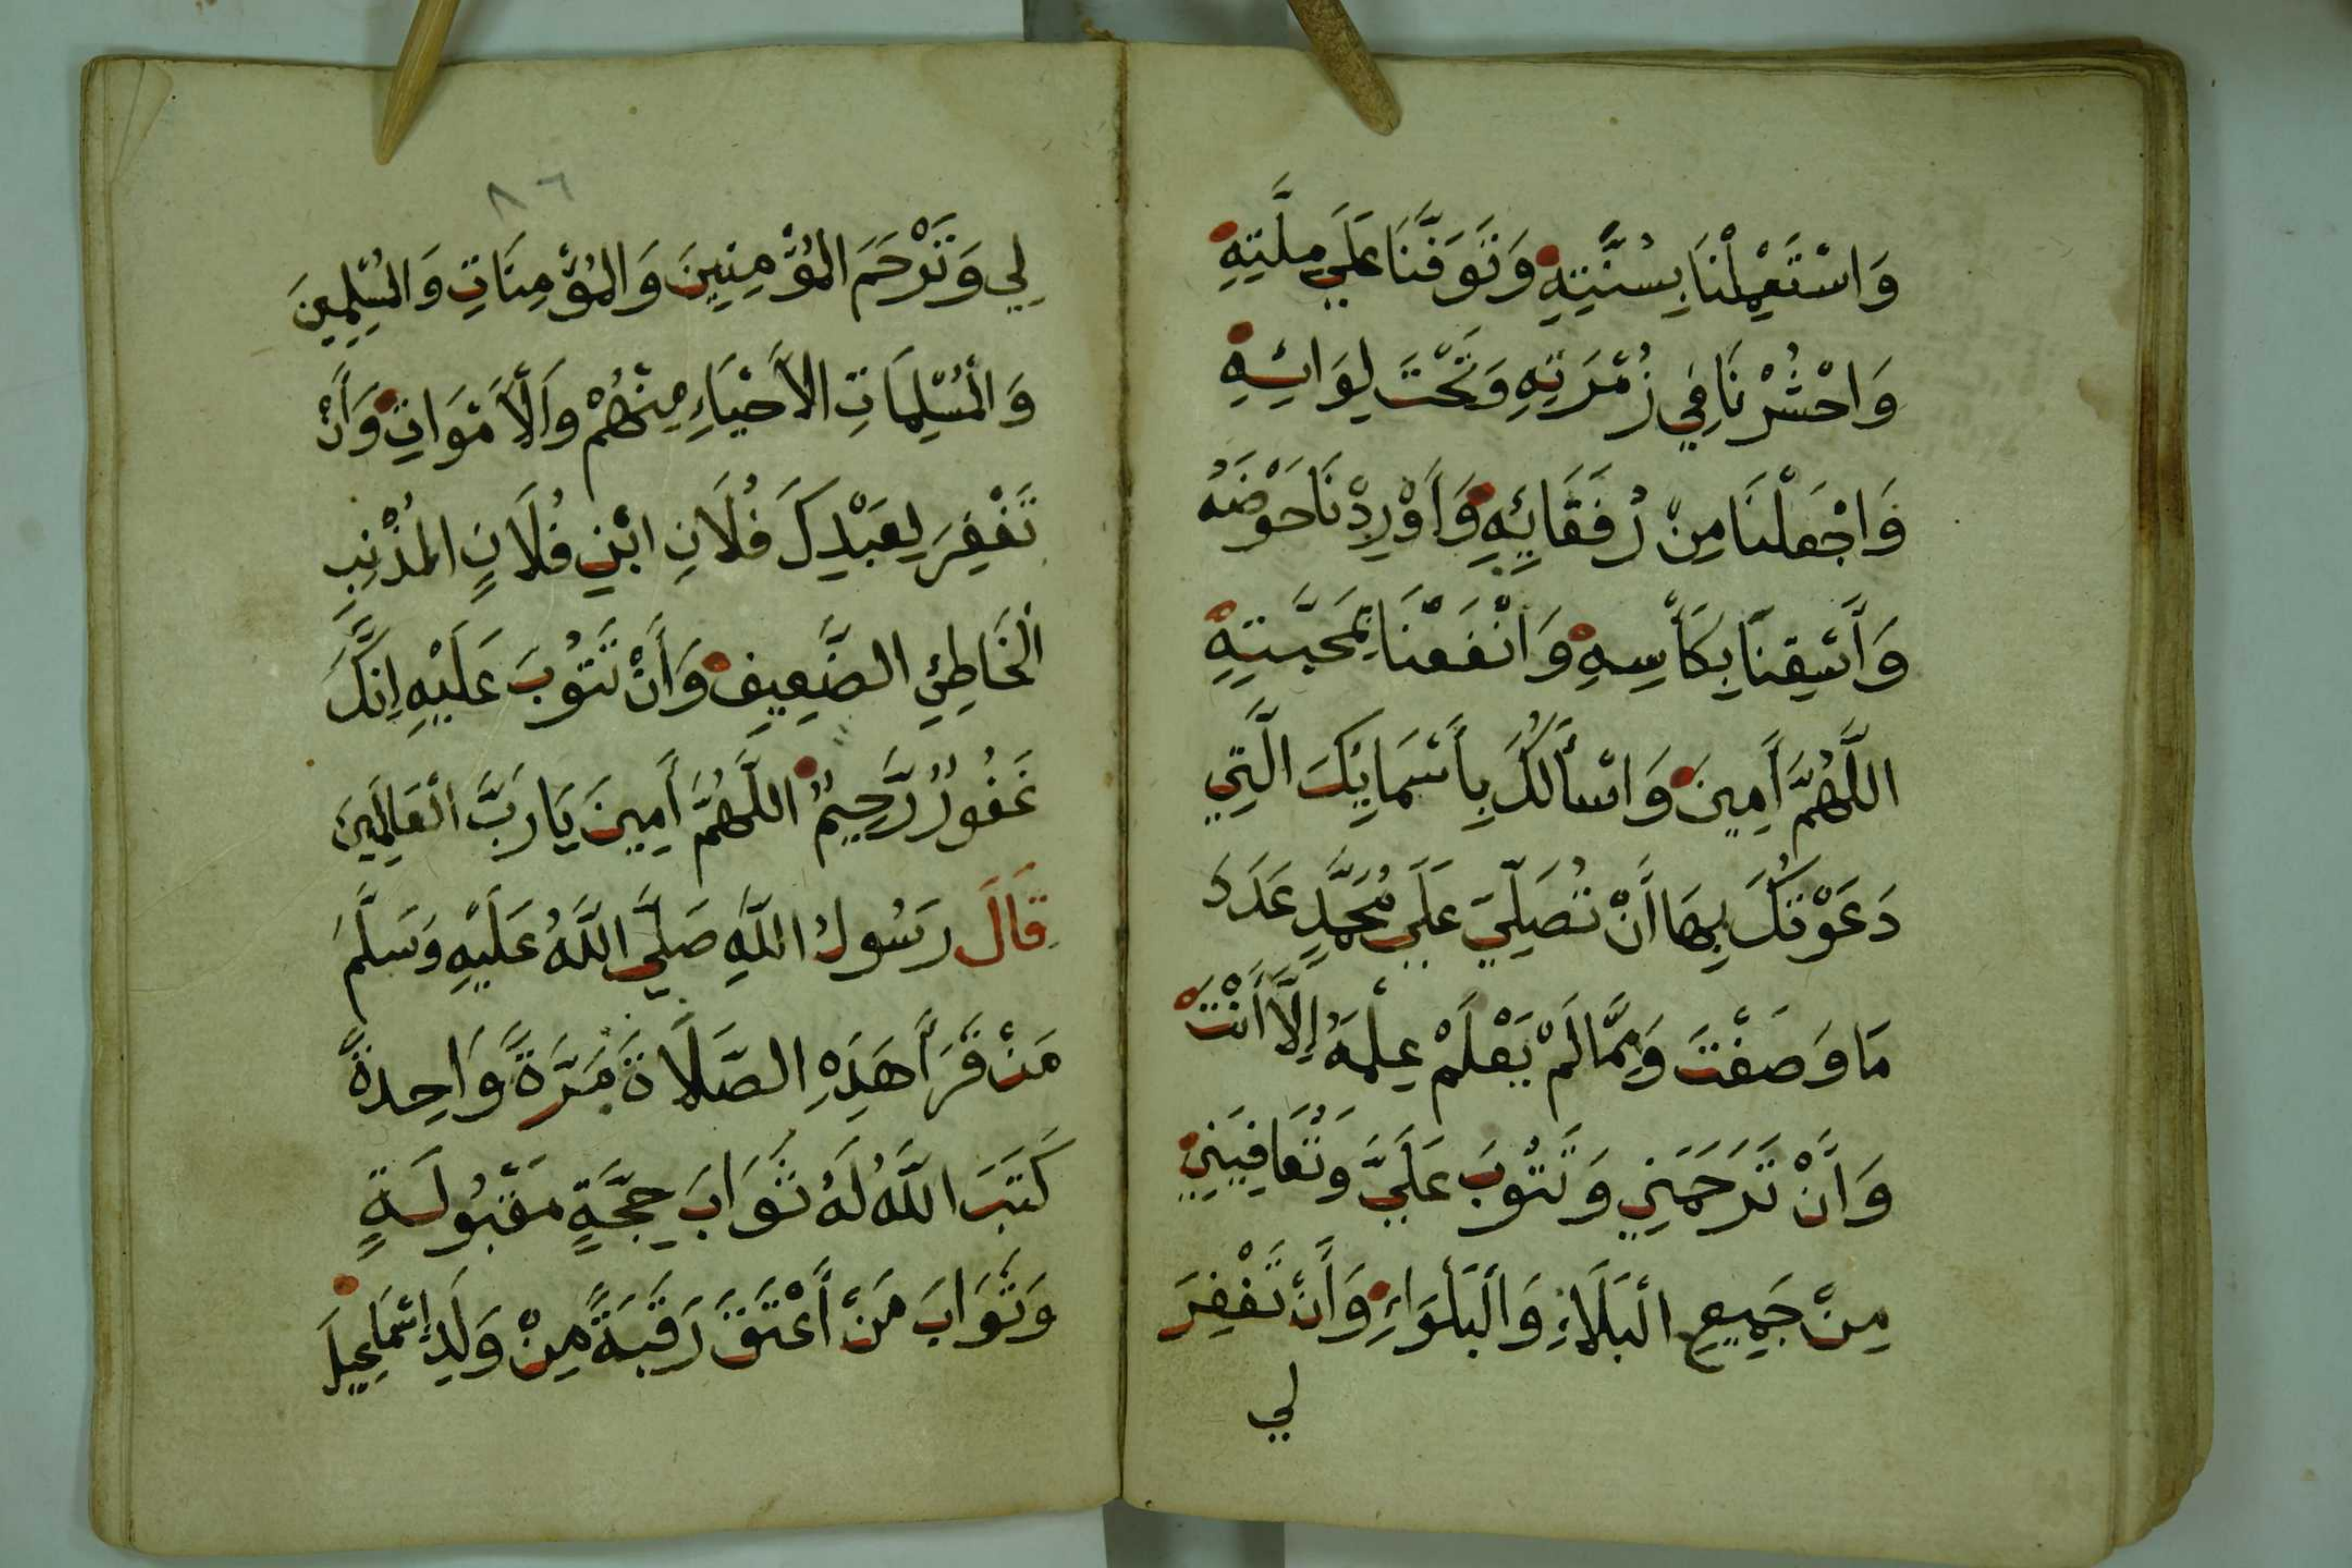 وَاسْتَعْمِلْنَا بِسُنَّتِهِ وَتَوَفَّنَا عَلَي مِلَّتِهِ
وَاحْشُرْنَا فِي زُمْرَتِهِ وَتَحْتَ لِوَائِهِ
وَاجْعَلْنَا مِنْ رُفَقَائِهِ وَأَوْرِدْنَا حَوْضَهُ
وَأَسْقِنَا بِكَأْسِهِ وَانْفَعْنَا بِمَحَبَّتِهِ
اللَّهُمَّ أَمِينَ وَاسْأَلُكَ بِأَسْمَايِكَ الَّتِي
دَعَوْتُكَ بِهَا أَنْ تُصَلِّيَ عَلَي مُحَمَّدٍ عَدَدَ
مَا وَصَفْتَ وَمِمَّا لَمْ يَعْلَمْ عِلْمَهُ إِلَّا أَنْتَ
وَأَنْ تَرْحَمَنِي وَتَتُوبَ عَلَيَّ وَتُعَافِيَنِي
مِنْ جَمِيعِ الْبَلَاءِ وَالْبَلْوَاءِ وَأَنْ تَغْفِرَ
لي
٨٦
لِي وَتَرْحَمَ الْمُؤْمِنِينَ وَالْمُؤْمِنَاتِ وَالْمُسْلِمِينَ
وَالْمُسْلِمَاتِ الْأَحْيَاءِ مِنْهُمْ وَالْأَمْوَاتِ وَأَنْ
تَغْفِرَ لِعَبْدِكَ فُلَانِ ابْنِ فُلَانٍ الْمُذْنِبِ
الْخَاطِئِ الضَّعِيفِ وَأَنْ تَتُوبَ عَلَيْهِ إِنَّكَ
غَفُورٌ رَّحِيمٌ اللَّهُمَّ أَمِينَ يَا رَبَّ الْعَالَمِينَ
قَالَ رَسُولُ اللَّهِ صَلَّي اللَّهُ عَلَيْهِ وَسَلَّمَ
مَنْ قَرَأَ هَذِهِ الصَّلَاةَ مَرَّةً وَاحِدَةً
كَتَبَ اللَّهُ لَهُ ثَوَابَ حِجَّةٍ مَقْبُولَةٍ
وَثَوَابَ مَنْ أَعْتَقَ رَقَبَةً مِنْ وَلَدِ إِسْمَاعِيلَ